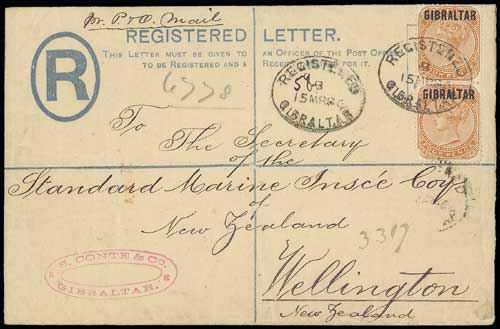 pr. P & O. Mail
REGISTERED LETTER.
THIS LETTER MUST BE GIVEN TO AN OFFICER OF THE POST
TO BE REGISTERED AND A RECEIPT FOR IT.
R
GIBRALTAR
GIBRALTAR
REGISTERED
15 MR 86
GIBRALTAR
REGISTERED
GIBRALTAR
To The Secretary
of the
Standard Marine Insce Coy
of
New Zealand
3317
S. CONTE & CO.
GIBRALTAR.
Wellington
New Zealand